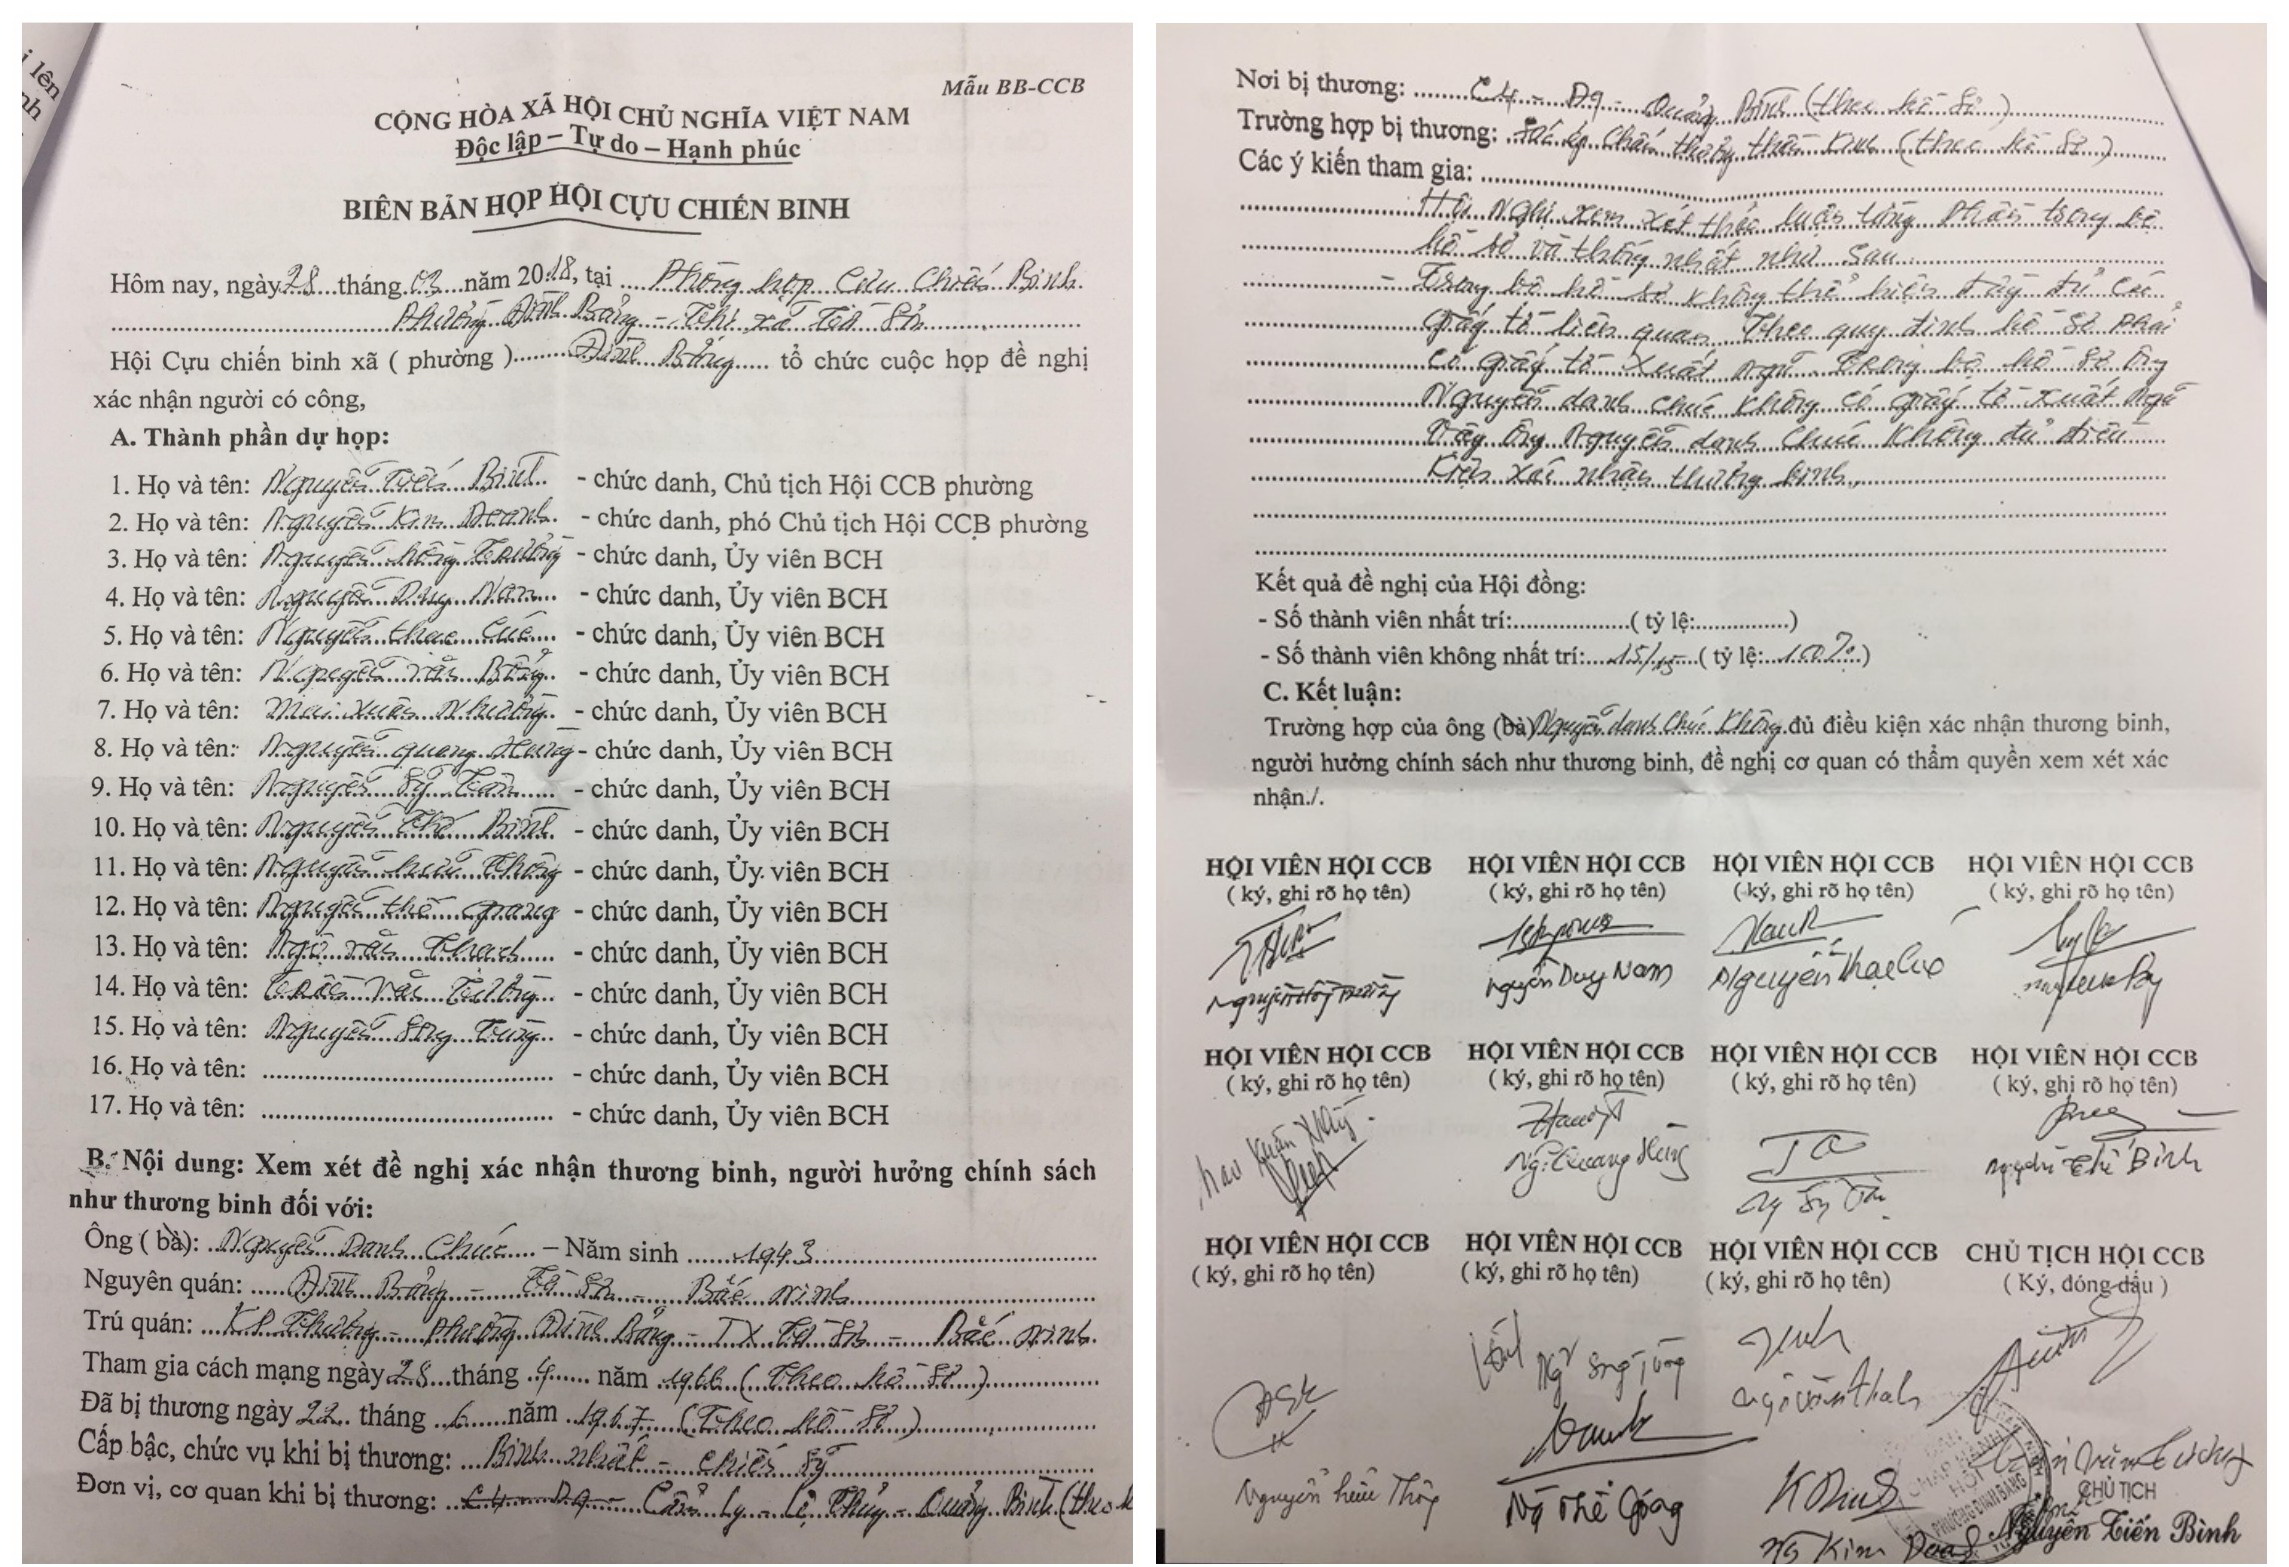 i lên
nh
Mẫu BB-CCB
CỘNG HÒA XÃ HỘI CHỦ NGHĨA VIỆT NAM
Độc lập – Tự do – Hạnh phúc
BIÊN BẢN HỌP HỘI CỰU CHIẾN BINH
Hôm nay, ngày 28 tháng 03 năm 2018, tại Phòng họp Cựu Chiến Binh
Phường Đình Bảng – Thị xã Từ Sơn
Hội Cựu chiến binh xã ( phường ) Đình Bảng tổ chức cuộc họp đề nghị
xác nhận người có công,
A. Thành phần dự họp:
1. Họ và tên: Nguyễn Tiến Bình - chức danh, Chủ tịch Hội CCB phường
2. Họ và tên: Nguyễn Kim Doanh - chức danh, phó Chủ tịch Hội CCB phường
3. Họ và tên: Nguyễn hồng Trường - chức danh, Ủy viên BCH
4. Họ và tên: Nguyễn Duy Nam - chức danh, Ủy viên BCH
5. Họ và tên: Nguyễn thạc - chức danh, Ủy viên BCH
6. Họ và tên: Nguyễn văn Bảy - chức danh, Ủy viên BCH
7. Họ và tên: Mai xuân - chức danh, Ủy viên BCH
8. Họ và tên: Nguyễn quang Hưng - chức danh, Ủy viên BCH
9. Họ và tên: Nguyễn Sỹ - chức danh, Ủy viên BCH
10. Họ và tên: Nguyễn Thế Bình - chức danh, Ủy viên BCH
11. Họ và tên: Nguyễn hữu Thông - chức danh, Ủy viên BCH
12. Họ và tên: Nguyễn thế - chức danh, Ủy viên BCH
13. Họ và tên: Ngô văn Thanh - chức danh, Ủy viên BCH
14. Họ và tên: Trần văn Tường - chức danh, Ủy viên BCH
15. Họ và tên: Nguyễn Song Tùng - chức danh, Ủy viên BCH
16. Họ và tên: - chức danh, Ủy viên BCH
17. Họ và tên: - chức danh, Ủy viên BCH
B. Nội dung: Xem xét đề nghị xác nhận thương binh, người hưởng chính sách
như thương binh đối với:
Ông ( bà): Nguyễn Danh Chúc – Năm sinh 1943
Nguyên quán: Đình Bảng – Từ Sơn – Bắc ninh
Trú quán: KP Thượng – phường Đình Bảng – TX Từ Sơn – Bắc ninh
Tham gia cách mạng ngày 28 tháng 4 năm 1966 (Theo hồ sơ)
Đã bị thương ngày 22 tháng 6 năm 1967 (Theo hồ sơ)
Cấp bậc, chức vụ khi bị thương: Binh nhất – chiến sỹ
Đơn vị, cơ quan khi bị thương: C4 – D9 – Cẩm Ly – Lệ Thủy – Quảng Bình (theo
Nơi bị thương: C4 – D9 – Quảng Bình (theo hồ sơ)
Trường hợp bị thương: Sức ép Chấn thương thần kinh (theo hồ sơ)
Các ý kiến tham gia:
Hội nghị xem xét thảo luận từng phần trong bộ
hồ sơ và thống nhất như sau
– Trong bộ hồ sơ không thể hiện đầy đủ các
giấy tờ liên quan Theo quy định hồ sơ phải
có giấy tờ xuất ngũ. Trong bộ hồ sơ ông
Nguyễn danh chúc không có giấy tờ xuất ngũ
Vậy ông Nguyễn danh chúc không đủ điều
kiện xác nhận thương binh.
Kết quả đề nghị của Hội đồng:
- Số thành viên nhất trí: ( tỷ lệ: )
- Số thành viên không nhất trí: 15/15 ( tỷ lệ: 100%)
C. Kết luận:
Trường hợp của ông (bà) Nguyễn danh Chúc Không đủ điều kiện xác nhận thương binh,
người hưởng chính sách như thương binh, đề nghị cơ quan có thẩm quyền xem xét xác
nhận./.
HỘI VIÊN HỘI CCB HỘI VIÊN HỘI CCB HỘI VIÊN HỘI CCB HỘI VIÊN HỘI CCB
( ký, ghi rõ họ tên) ( ký, ghi rõ họ tên) ( ký, ghi rõ họ tên) ( ký, ghi rõ họ tên)
Nguyễn Hồng Trường Nguyễn Duy Nam Nguyễn Thạc
HỘI VIÊN HỘI CCB HỘI VIÊN HỘI CCB HỘI VIÊN HỘI CCB HỘI VIÊN HỘI CCB
( ký, ghi rõ họ tên) ( ký, ghi rõ họ tên) ( ký, ghi rõ họ tên) ( ký, ghi rõ họ tên)
Ng. Quang Hưng Nguyễn Thế Bình
HỘI VIÊN HỘI CCB HỘI VIÊN HỘI CCB HỘI VIÊN HỘI CCB CHỦ TỊCH HỘI CCB
( ký, ghi rõ họ tên) ( ký, ghi rõ họ tên) ( ký, ghi rõ họ tên) ( Ký, đóng dấu )
Ng Song Tùng Ngô văn Thanh
CHỦ TỊCH
Nguyễn hữu Thông Ng Thế Ng Kim Doanh Nguyễn Tiến Bình